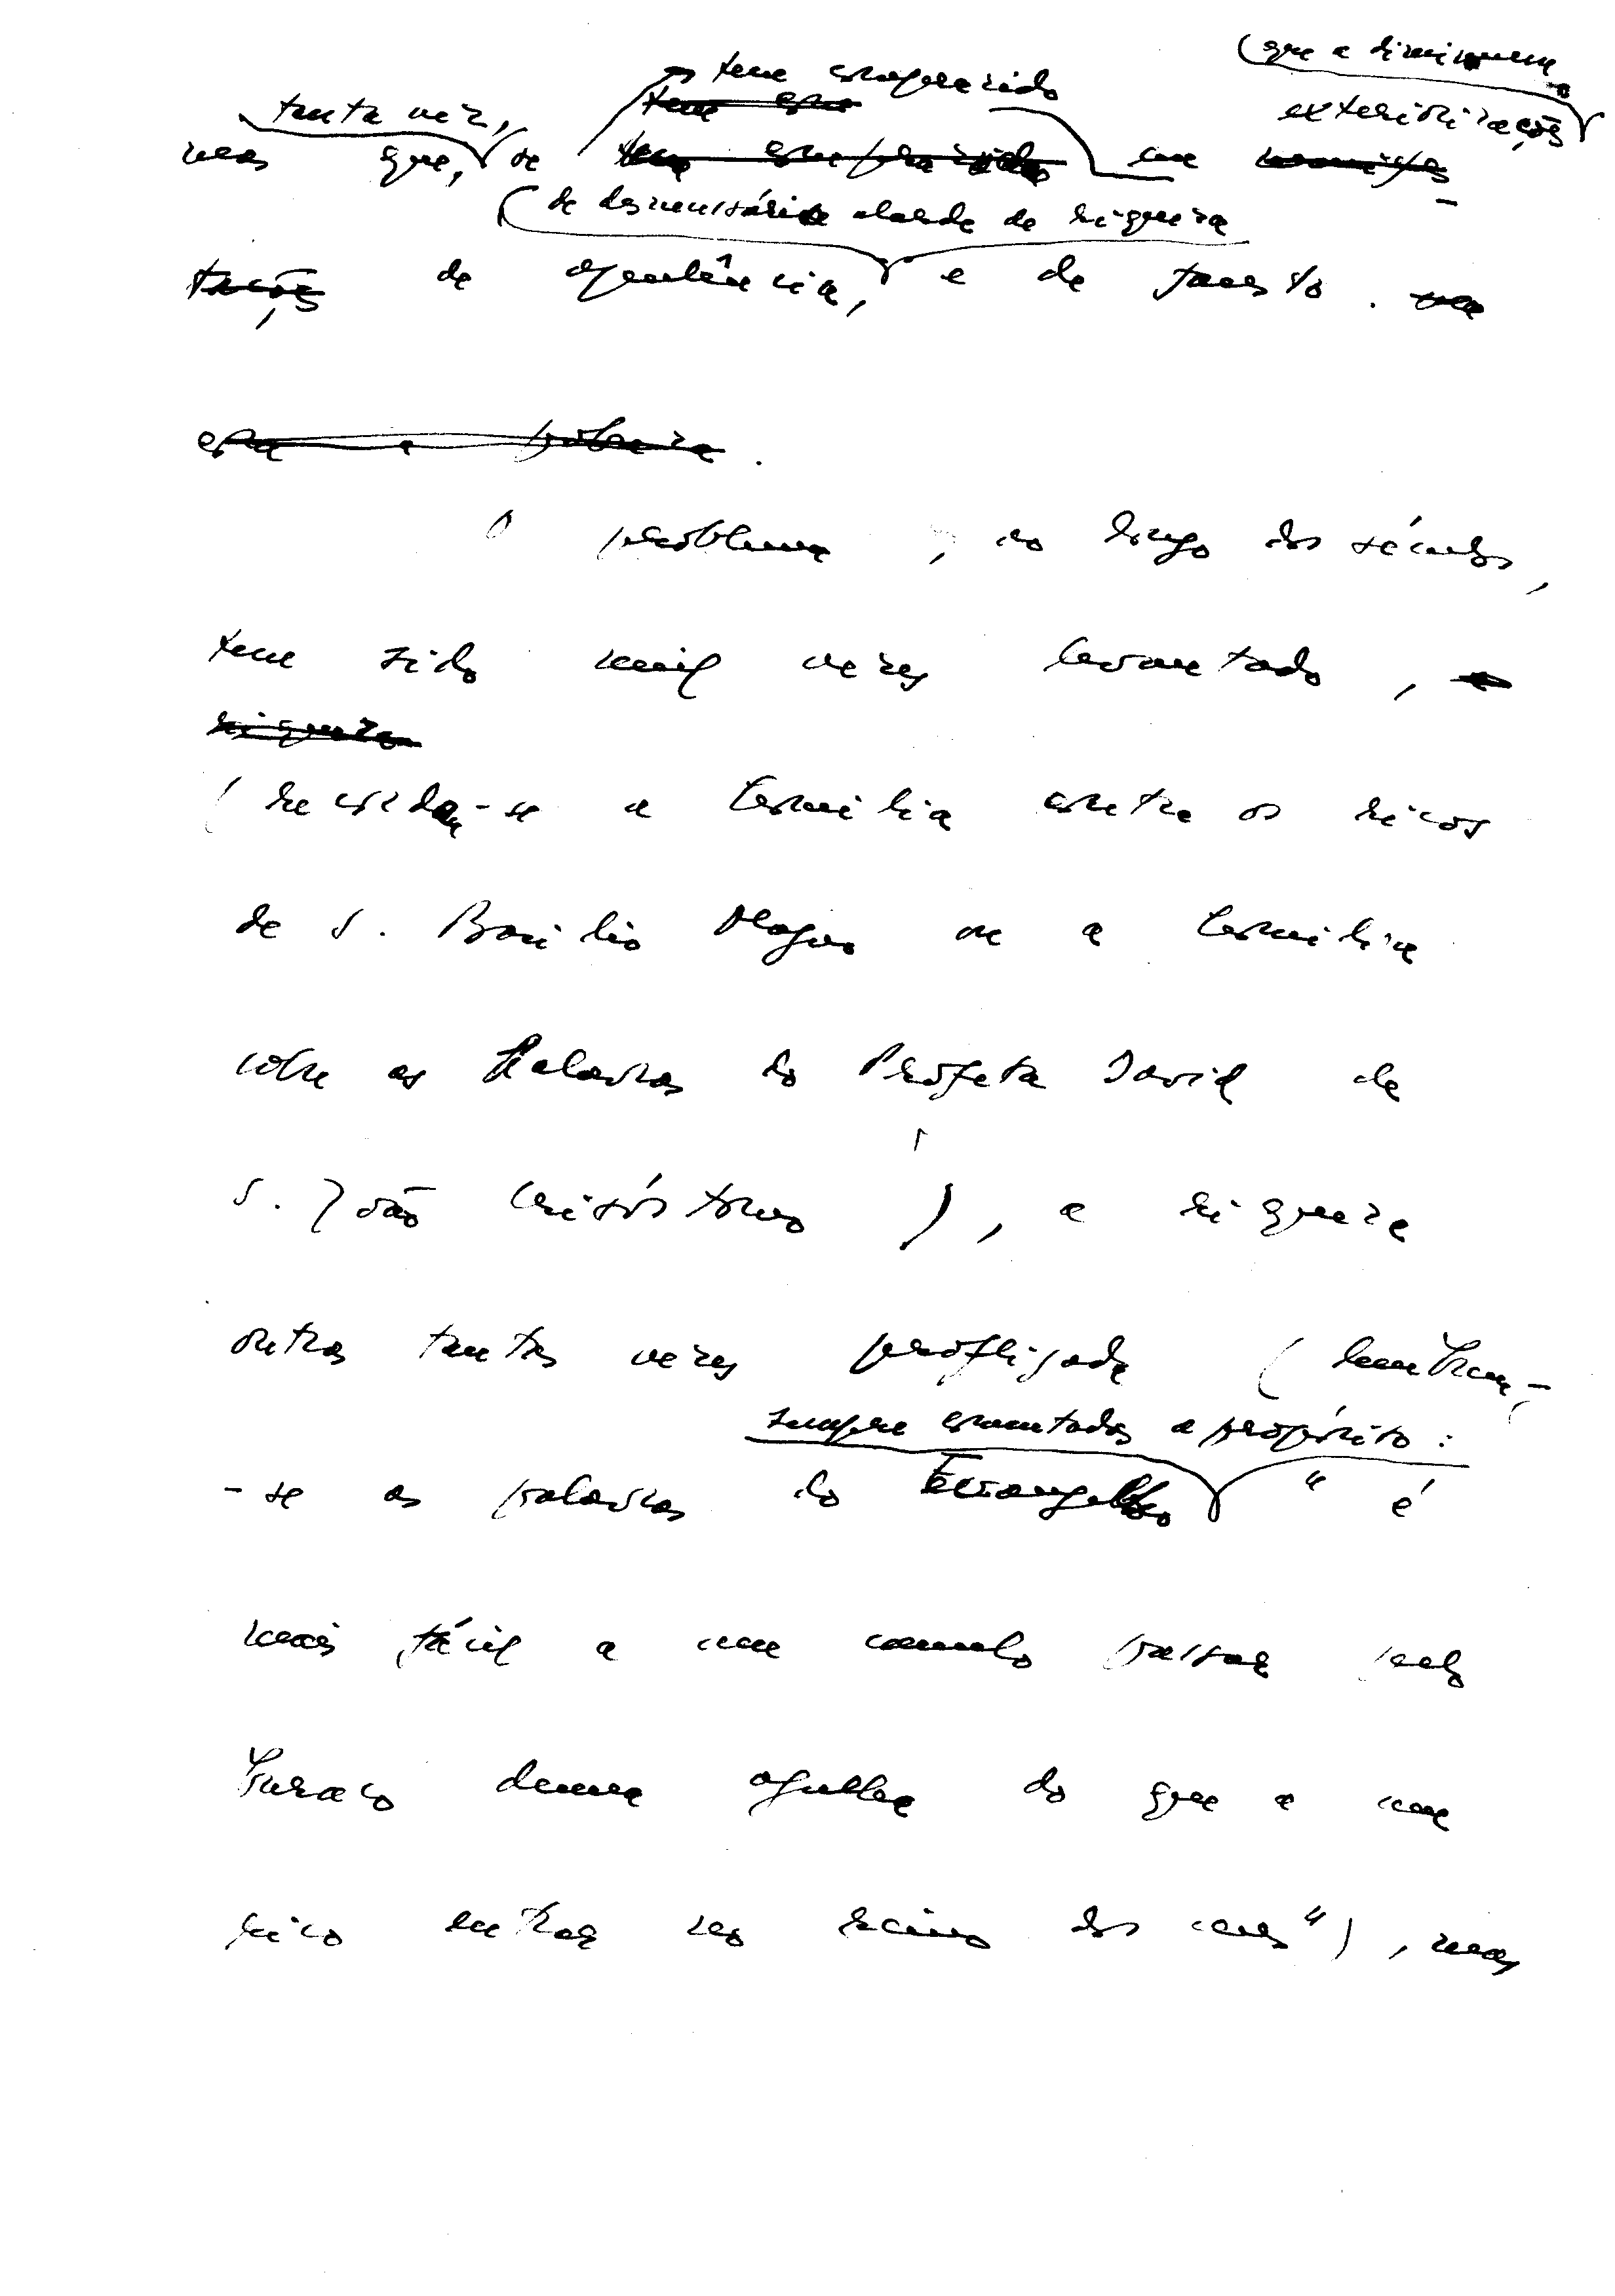 (que a diminuem
tem comprazido
tanta vez,
exteriorizações
mas que, se em
(de desnecessário alarde de riqueza
de opulência, e de fausto.
O problema, ao longo dos séculos,
tem sido mil vezes levantado,
riqueza
(recorda-se a homilia contra os ricos
de S. Basílio Magno ou a homilia
sobre as Palavras do Profeta David de
S. João Crisóstomo), a riqueza
outras tantas vezes profligada (lembram-
sempre comentadas a propósito:
-se as palavras do Evangelho "é
mais fácil a um camelo passar pelo
buraco duma agulha do que a um
rico entrar no reino dos céus"), mas